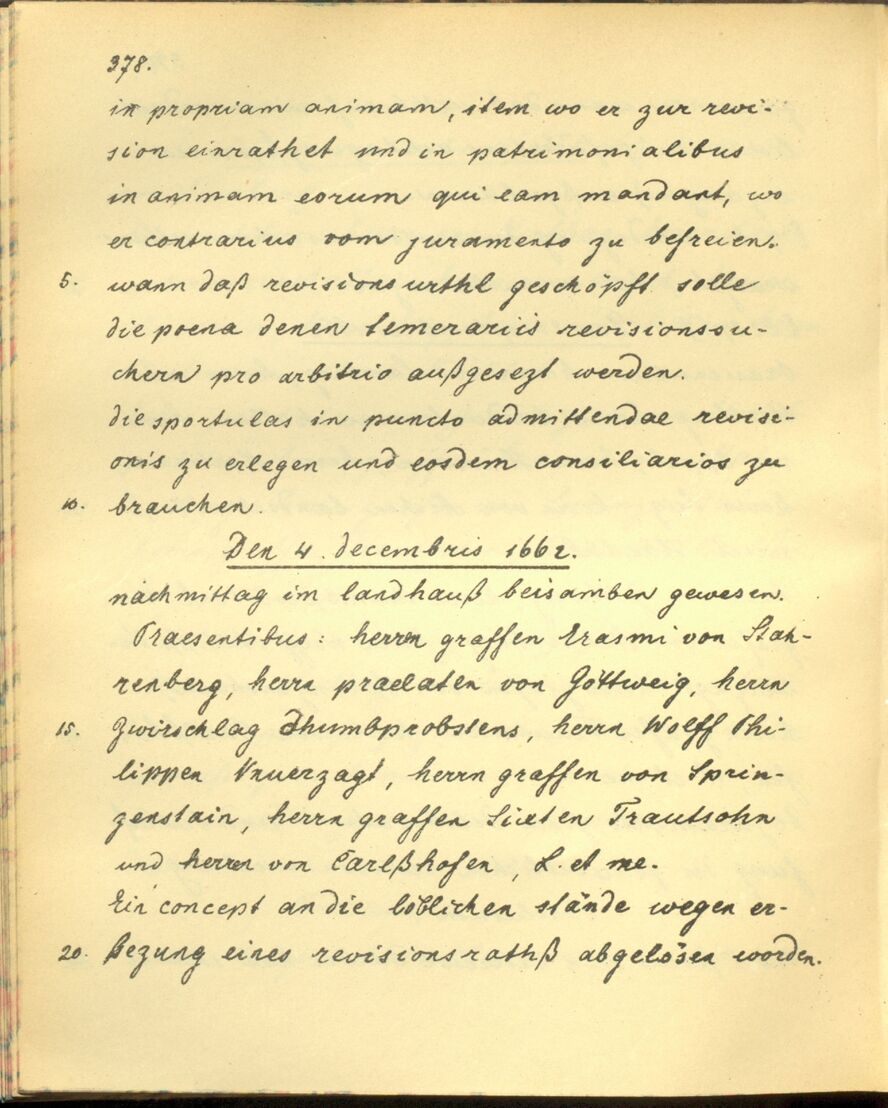 378.
in propriam animam, item wo er zur revi-
sion einrathet und in patrimonialibus
in animam eorum qui eam mandant, wo
er contrarius vom juramento zu befreien.
5. wann daß revisionsurthl geschöpft solle
die poena denen temerariis revisionssu-
chern pro arbitrio außgesezt werden.
die sportulas in puncto admittendae revisi-
onis zu erlegen und eosdem consiliarios zu
10. brauchen.
Den 4. decembris 1662.
nachmittag im landhauß beisamben gewesen.
Praesentibus: herren graffen Erasmi von Stah-
renberg, herrn praelaten von Göttweig, herrn
15. Zwirschlag Thumbprobstens, herrn Wolff Phi-
lippen Vnuerzagt, herrn graffen von Sprin-
zenstain, herrn graffen Sixten Trautsohn
und herrn von Carlßhofen, L. et me.
Ein concept an die löblichen stände wegen er-
20. sezung eines revisionsrathß abgelösen worden.